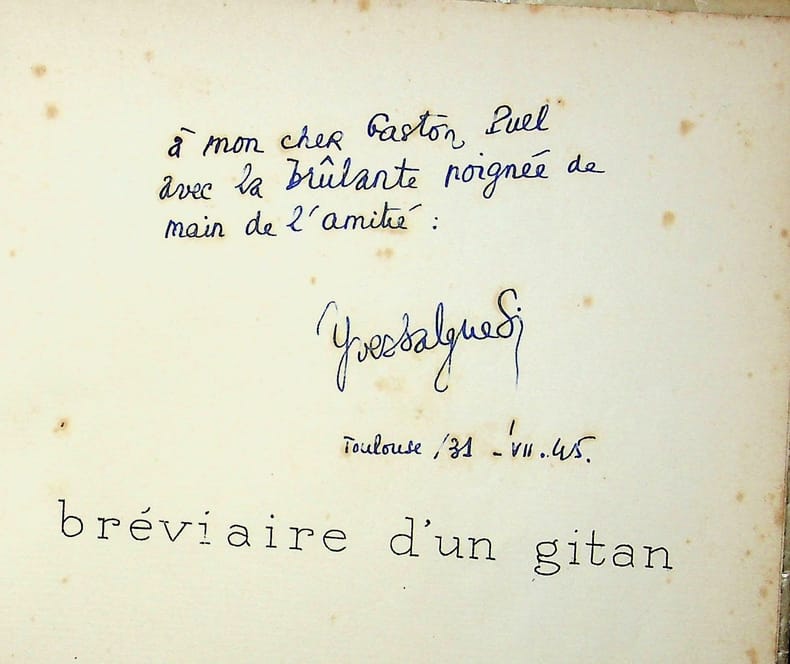 à mon cher Gaston Puel
avec la brûlante poignée de
main de l'amitié :
Yves Salgues
Toulouse / 31 - VII . 45.
bréviaire d'un gitan